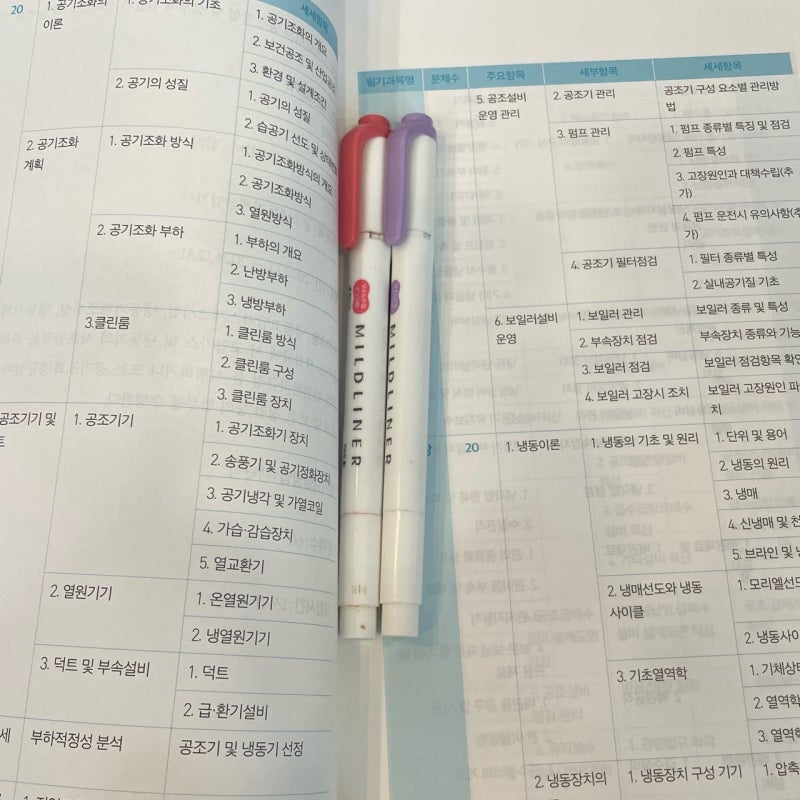 20
1. 공기조화의
이론
1. 공기조화의 기초
세세항목
1. 공기조화의 개요
2. 보건공조 및 산업공조
3. 환경 및 설계조건
2. 공기의 성질
1. 공기의 성질
2. 습공기 선도 및 상태변화
2. 공기조화
계획
1. 공기조화 방식
1. 공기조화방식의 개요
2. 공기조화방식
3. 열원방식
2. 공기조화 부하
1. 부하의 개요
2. 난방부하
3. 냉방부하
3.클린룸
1. 클린룸 방식
2. 클린룸 구성
3. 클린룸 장치
공조기기 및
트
1. 공조기기
1. 공기조화기 장치
2. 송풍기 및 공기정화장치
3. 공기냉각 및 가열코일
4. 가습·감습장치
5. 열교환기
2. 열원기기
1. 온열원기기
2. 냉열원기기
3. 덕트 및 부속설비
1. 덕트
2. 급·환기설비
세
부하적정성 분석
공조기 및 냉동기 선정
MILDLINER
MILDLINER
필기과목명 문제수 주요항목 세부항목 세세항목
5. 공조설비
운영 관리
2. 공조기 관리
공조기 구성 요소별 관리방
법
3. 펌프 관리
1. 펌프 종류별 특징 및 점검
2. 펌프 특성
3. 고장원인과 대책수립(추
가)
4. 펌프 운전시 유의사항(추
가)
4. 공조기 필터점검
1. 필터 종류별 특성
2. 실내공기질 기초
6. 보일러설비
운영
1. 보일러 관리
보일러 종류 및 특성
2. 부속장치 점검
부속장치 종류와 기능
3. 보일러 점검
보일러 점검항목 확인
4. 보일러 고장시 조치
보일러 고장원인 파
치
20
1. 냉동이론
1. 냉동의 기초 및 원리
1. 단위 및 용어
2. 냉동의 원리
3. 냉매
4. 신냉매 및 천
5. 브라인 및 냉
2. 냉매선도와 냉동
사이클
1. 모리엘선도
2. 냉동사이
3. 기초열역학
1. 기체상태
2. 열역학
3. 열역학
2. 냉동장치의
1. 냉동장치 구성 기기
1. 압축